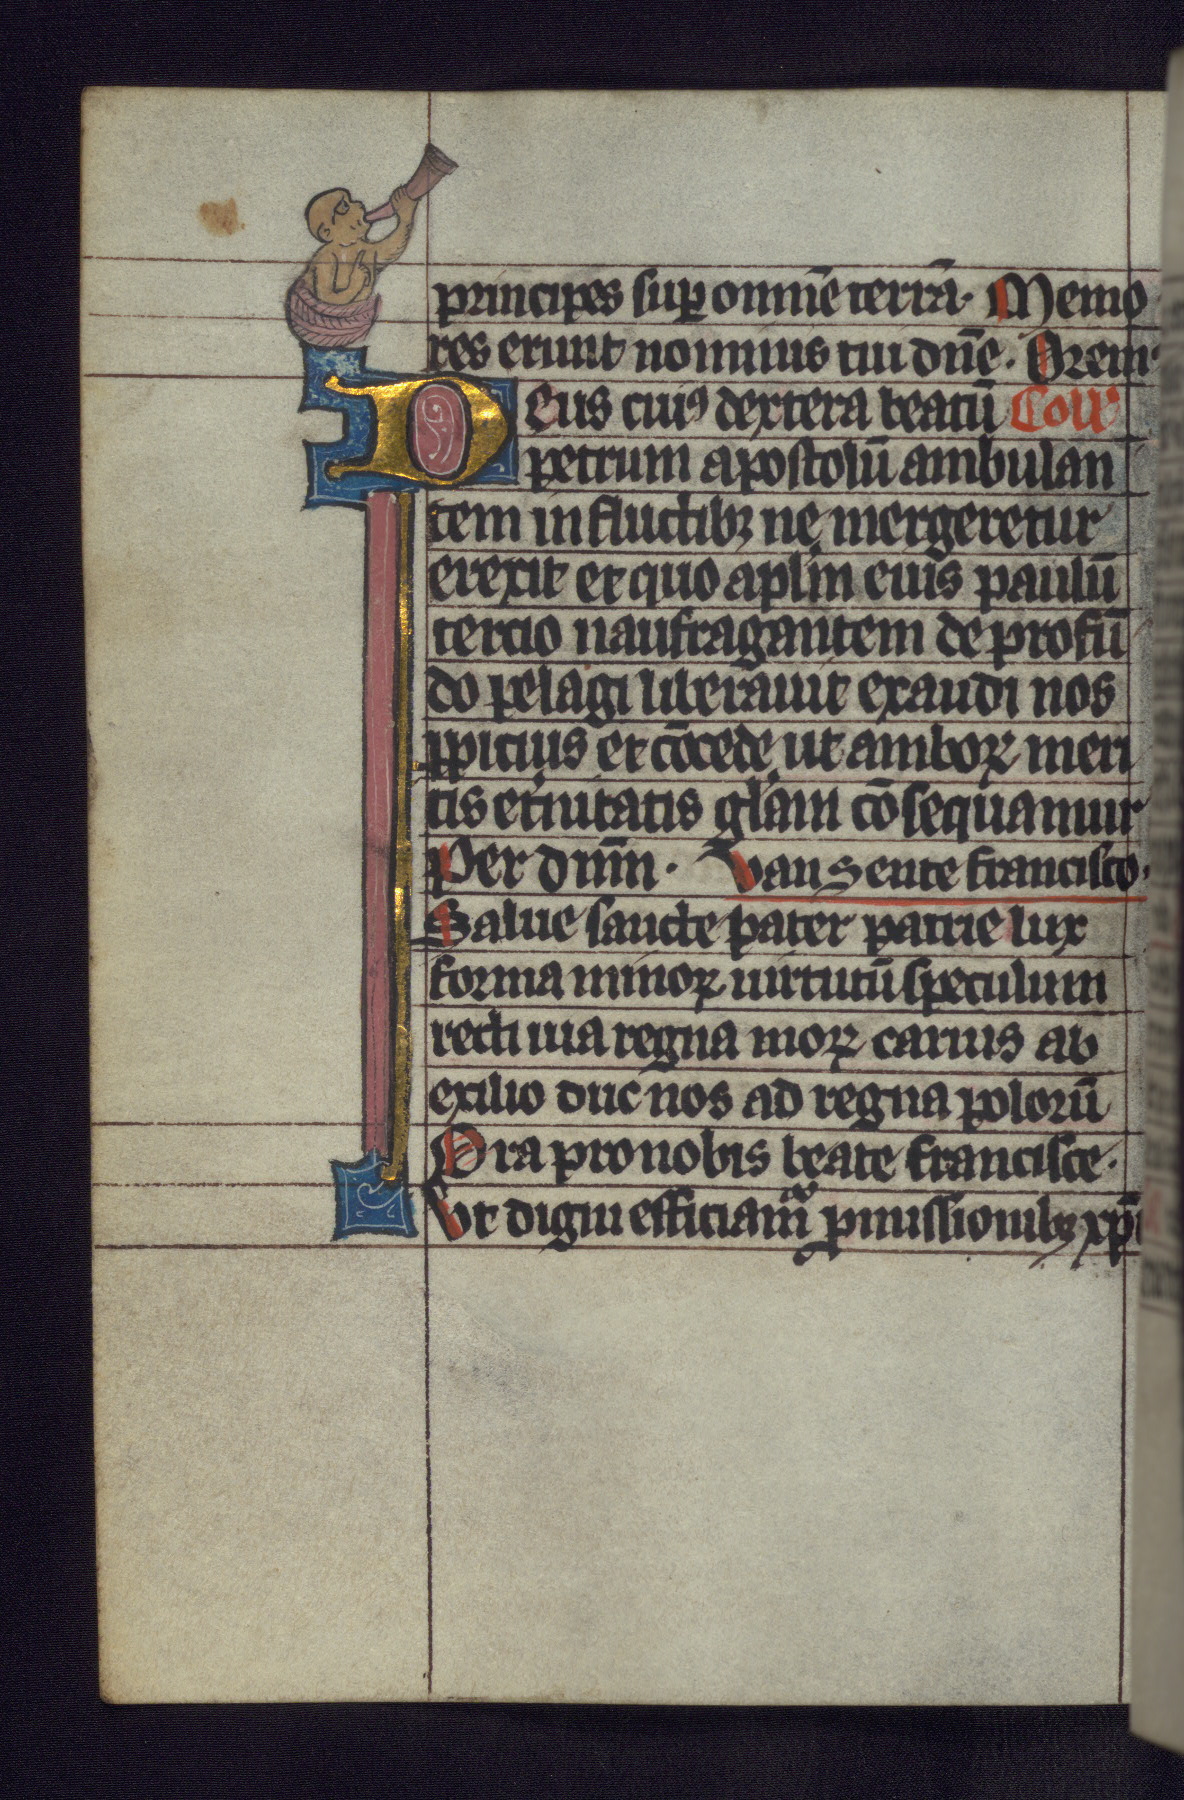 principes sup omnē terrā. Memo
res erunt nominis tui dn̄e. Orem
Deus cuiꝰ dextera beatū Coll
petrum apostolū ambulan
tem in fluctibꝫ ne mergeretur
erexit et quo aplm eius paulū
tercio naufragantem de profū
do pelagi liberauit exaudi nos
ppicius et cōcede ut amboꝝ meri
tis et̄nitatis gl̄am cōsequamur
Per dnm̄. Van sente francisco.
Salue sancte pater patrie lux
forma minoꝝ uirtutū speculum
recti uia regna moꝝ carius ab
exilio duc nos ad regna polorū
Ora pro nobis beate francisce.
Vt digni efficiam̄ pmissionibꝫ xp̄i